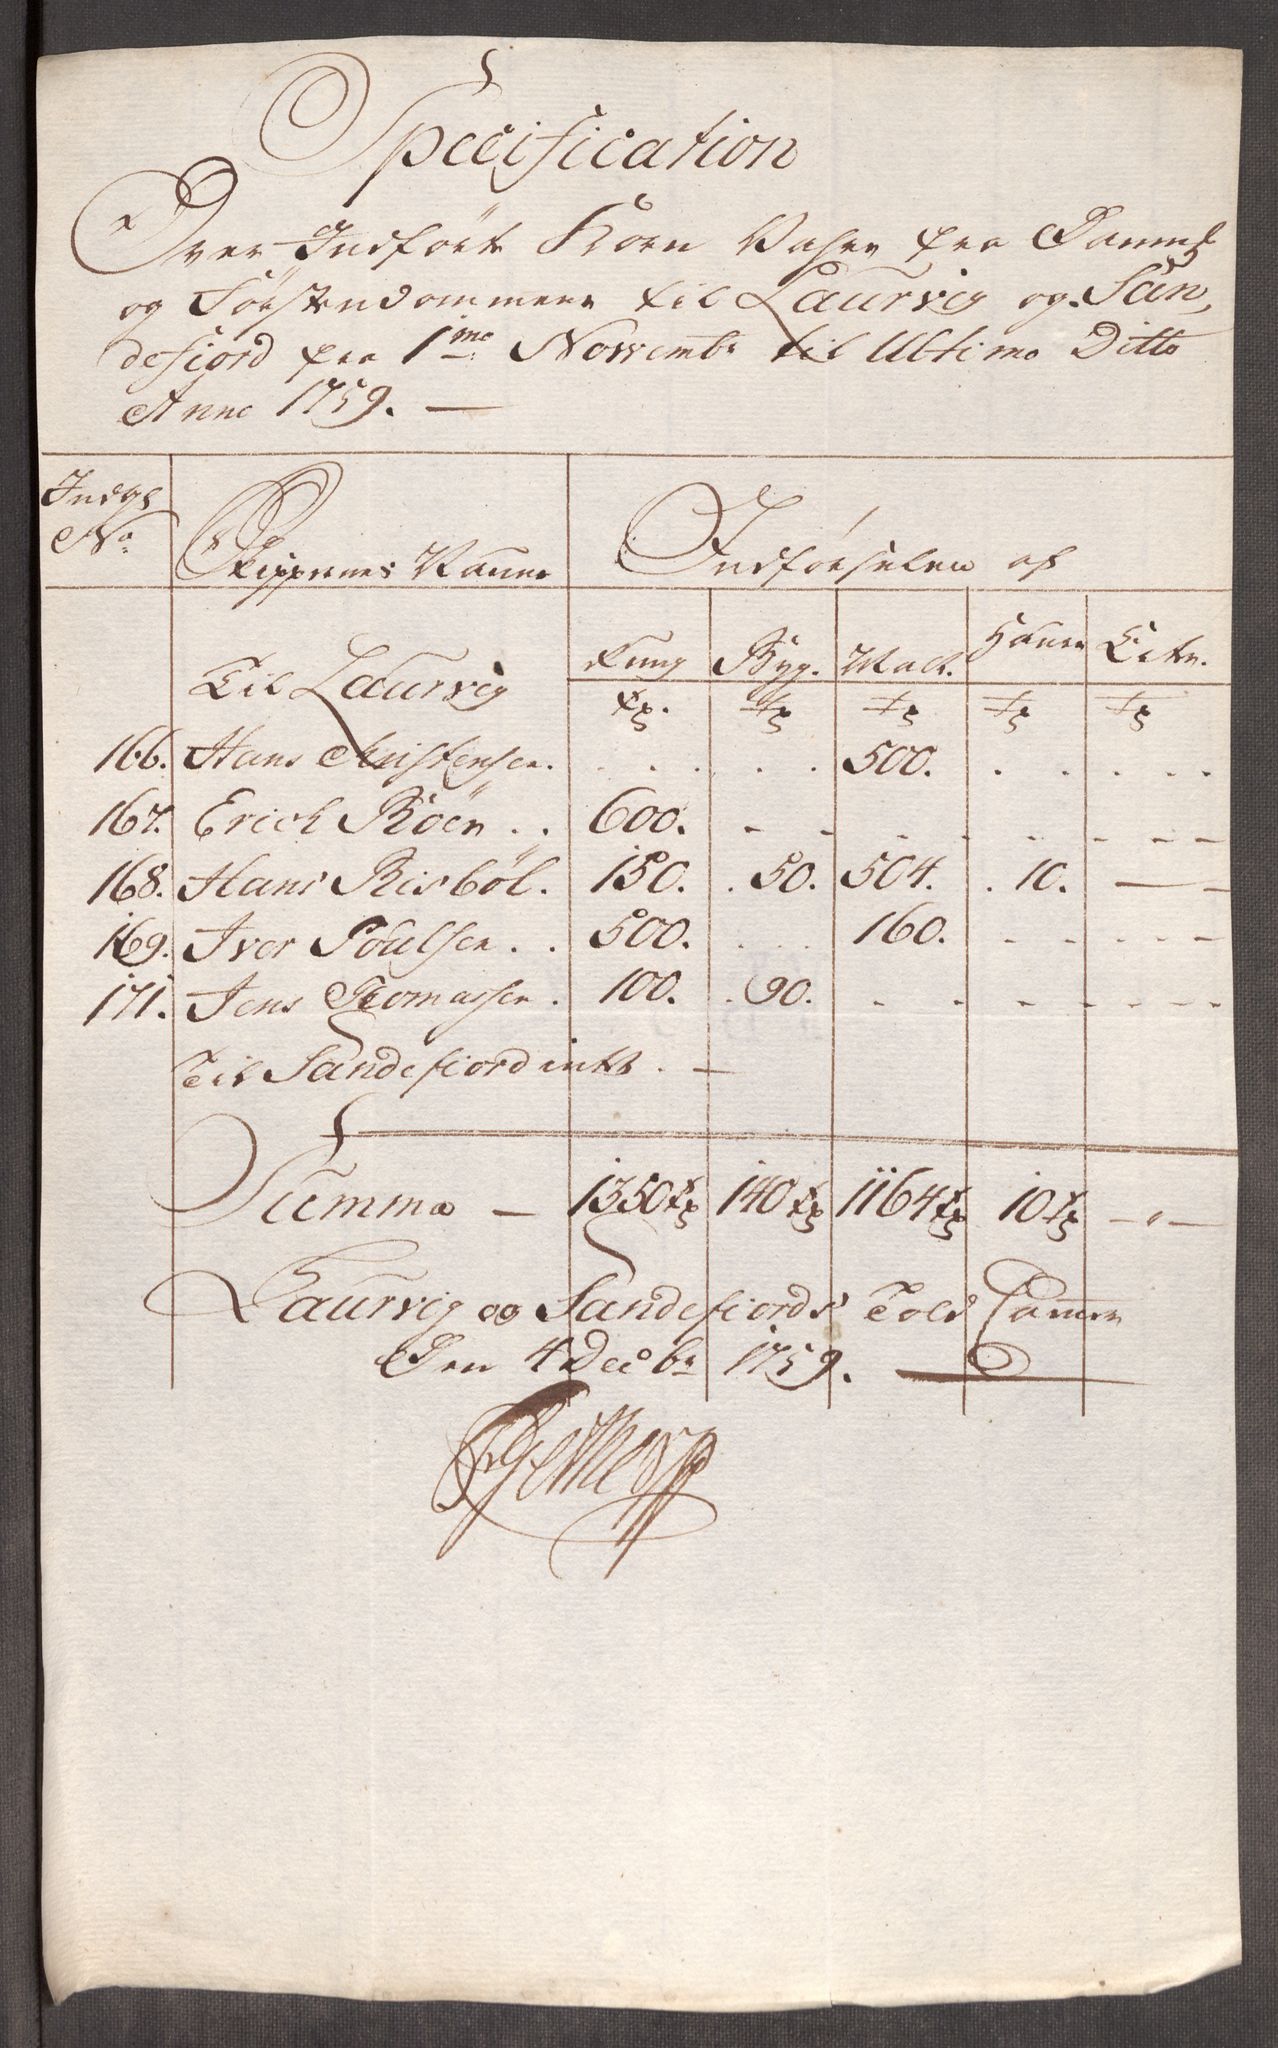 Specification
Over Indført Korn Vahre fra Danmk
og Førstendommene til Laurvig og San,
defiord fra 1me Novembr til Ultimo Ditto
Anno 1759. —
Indgl No Skippernes Naune Indførselen af
Til Laurvig Rug Byg. Malt. Haure Erter.
Tr. Tr Tr Tr Tr
166. Hans Christensen. 500.
167. Erich Röen 600.
168. Hans Risböl. 150. 50. 504. 10. —
169. Iver Poulsen 500. 160.
171. Jens Thomassen. 100. 90.
Til Sandefiord intet. —
Summa — 1350 Tr 140 Tr 1164 Tr 10 Tr — " —
Laurvig og Sandefiords Told Camer
Den 4 Decbr 1759.